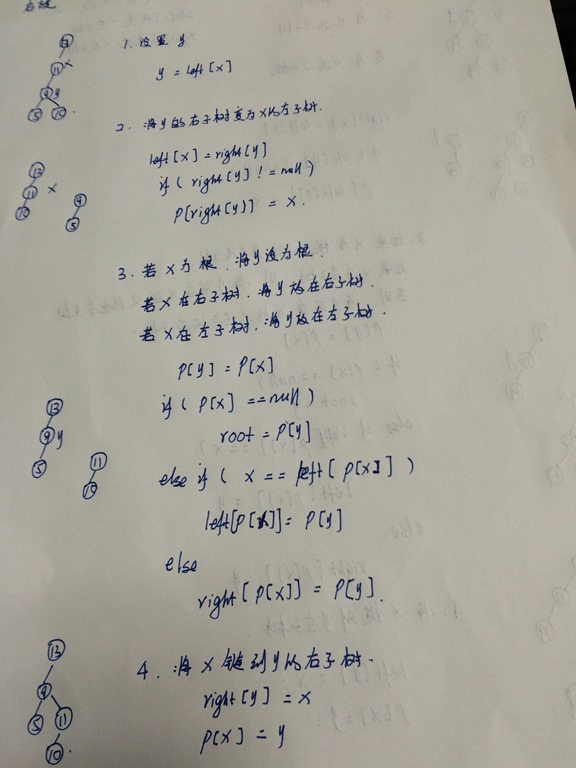 右旋
1. 设置 y
y = left[x]
13
11 x
9 y
5 10
2. 将y的右子树变为x的左子树.
left[x] = right[y]
if ( right[y] != null )
P[right[y]] = x.
13
11 x
10
9
5
3. 若x为根.将y设为根.
若x在右子树.将y放在右子树.
若x在左子树.将y放在左子树.
P[y] = P[x]
if ( P[x] == null )
root = P[y]
else if ( x == left[ P[x] ] )
left[P[x]] = P[y]
else
right[ P[x]] = P[y].
13
9 y
5
11
10
4. 将x链到y的右子树.
right[y] = x
P[x] = y
13
9
5 11
10